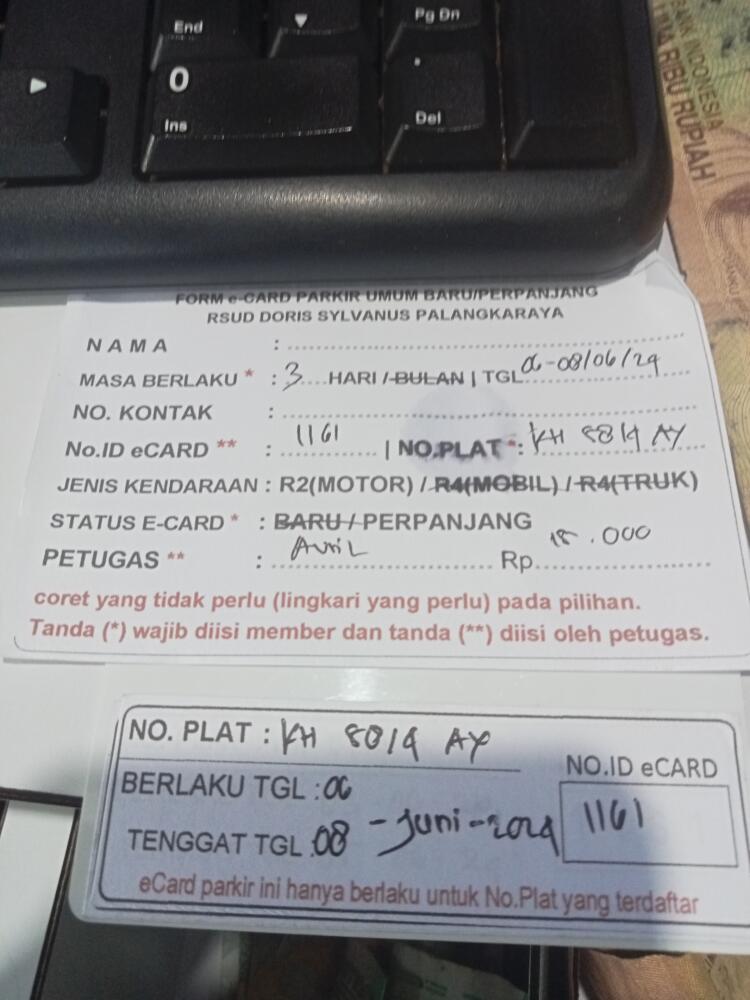 End
▼
Pg Dn
►
0
Ins
.
Del
BANK INDONESIA
RIBU RUPIAH
FORM e-CARD PARKIR UMUM BARU/PERPANJANG
RSUD DORIS SYLVANUS PALANGKARAYA
NAMA :
MASA BERLAKU * : 3 HARI / BULAN | TGL 06-08/06/24
NO. KONTAK :
No.ID eCARD ** : 1161 | NO.PLAT *: KH 8019 AY
JENIS KENDARAAN : R2(MOTOR) / R4(MOBIL) / R4(TRUK)
STATUS E-CARD * : BARU / PERPANJANG
PETUGAS ** : Avril Rp 15.000
coret yang tidak perlu (lingkari yang perlu) pada pilihan.
Tanda (*) wajib diisi member dan tanda (**) diisi oleh petugas.
NO. PLAT : KH 8019 AY
BERLAKU TGL : 06
NO.ID eCARD
TENGGAT TGL 08 - Juni - 2024
1161
eCard parkir ini hanya berlaku untuk No.Plat yang terdaftar